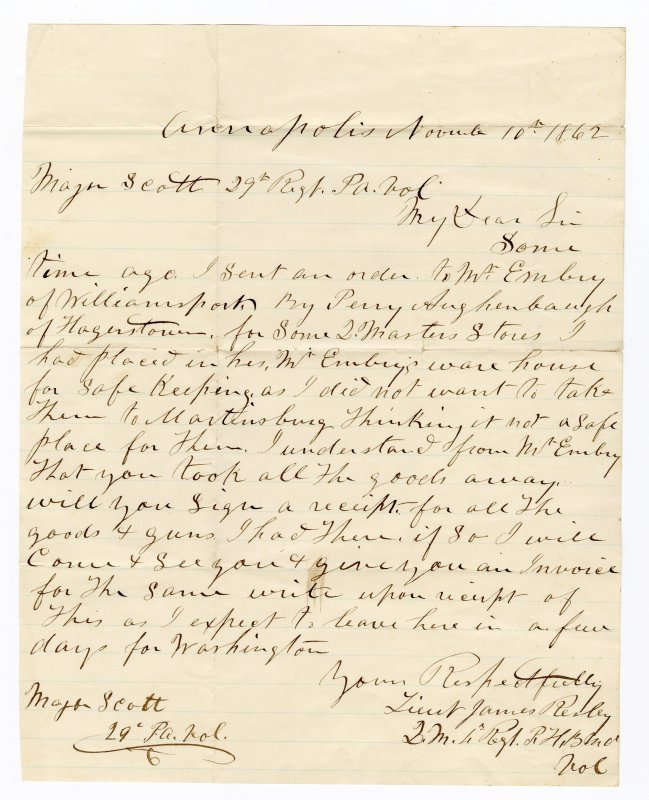 Annapolis Novembr 10th 1862
Major Scott 29th Regt. Pa. Vol
My Dear Sir
Some
time ago I sent an order to Mr Embry
of Williamsport By Perry Aughenbaugh
of Hagerstown, for Some Q. Masters Stores I
had placed in his, Mr Embry's ware house
for Safe Keeping, as I did not want to take
them to Martinsburg Thinking it not a Safe
place for Them. I understand from Mr Embry
That you took all The goods away.
will you Sign a receipt for all The
goods & guns I had There, if So I will
Come & See you & give you an Invoice
for The Same write upon receipt of
This as I expect to leave here in a few
days for Washington
Yours Respectfully
Lieut James Resley
Q.M. 1st Regt. P.H.B Md
Vol
Major Scott
29th Pa. Vol.